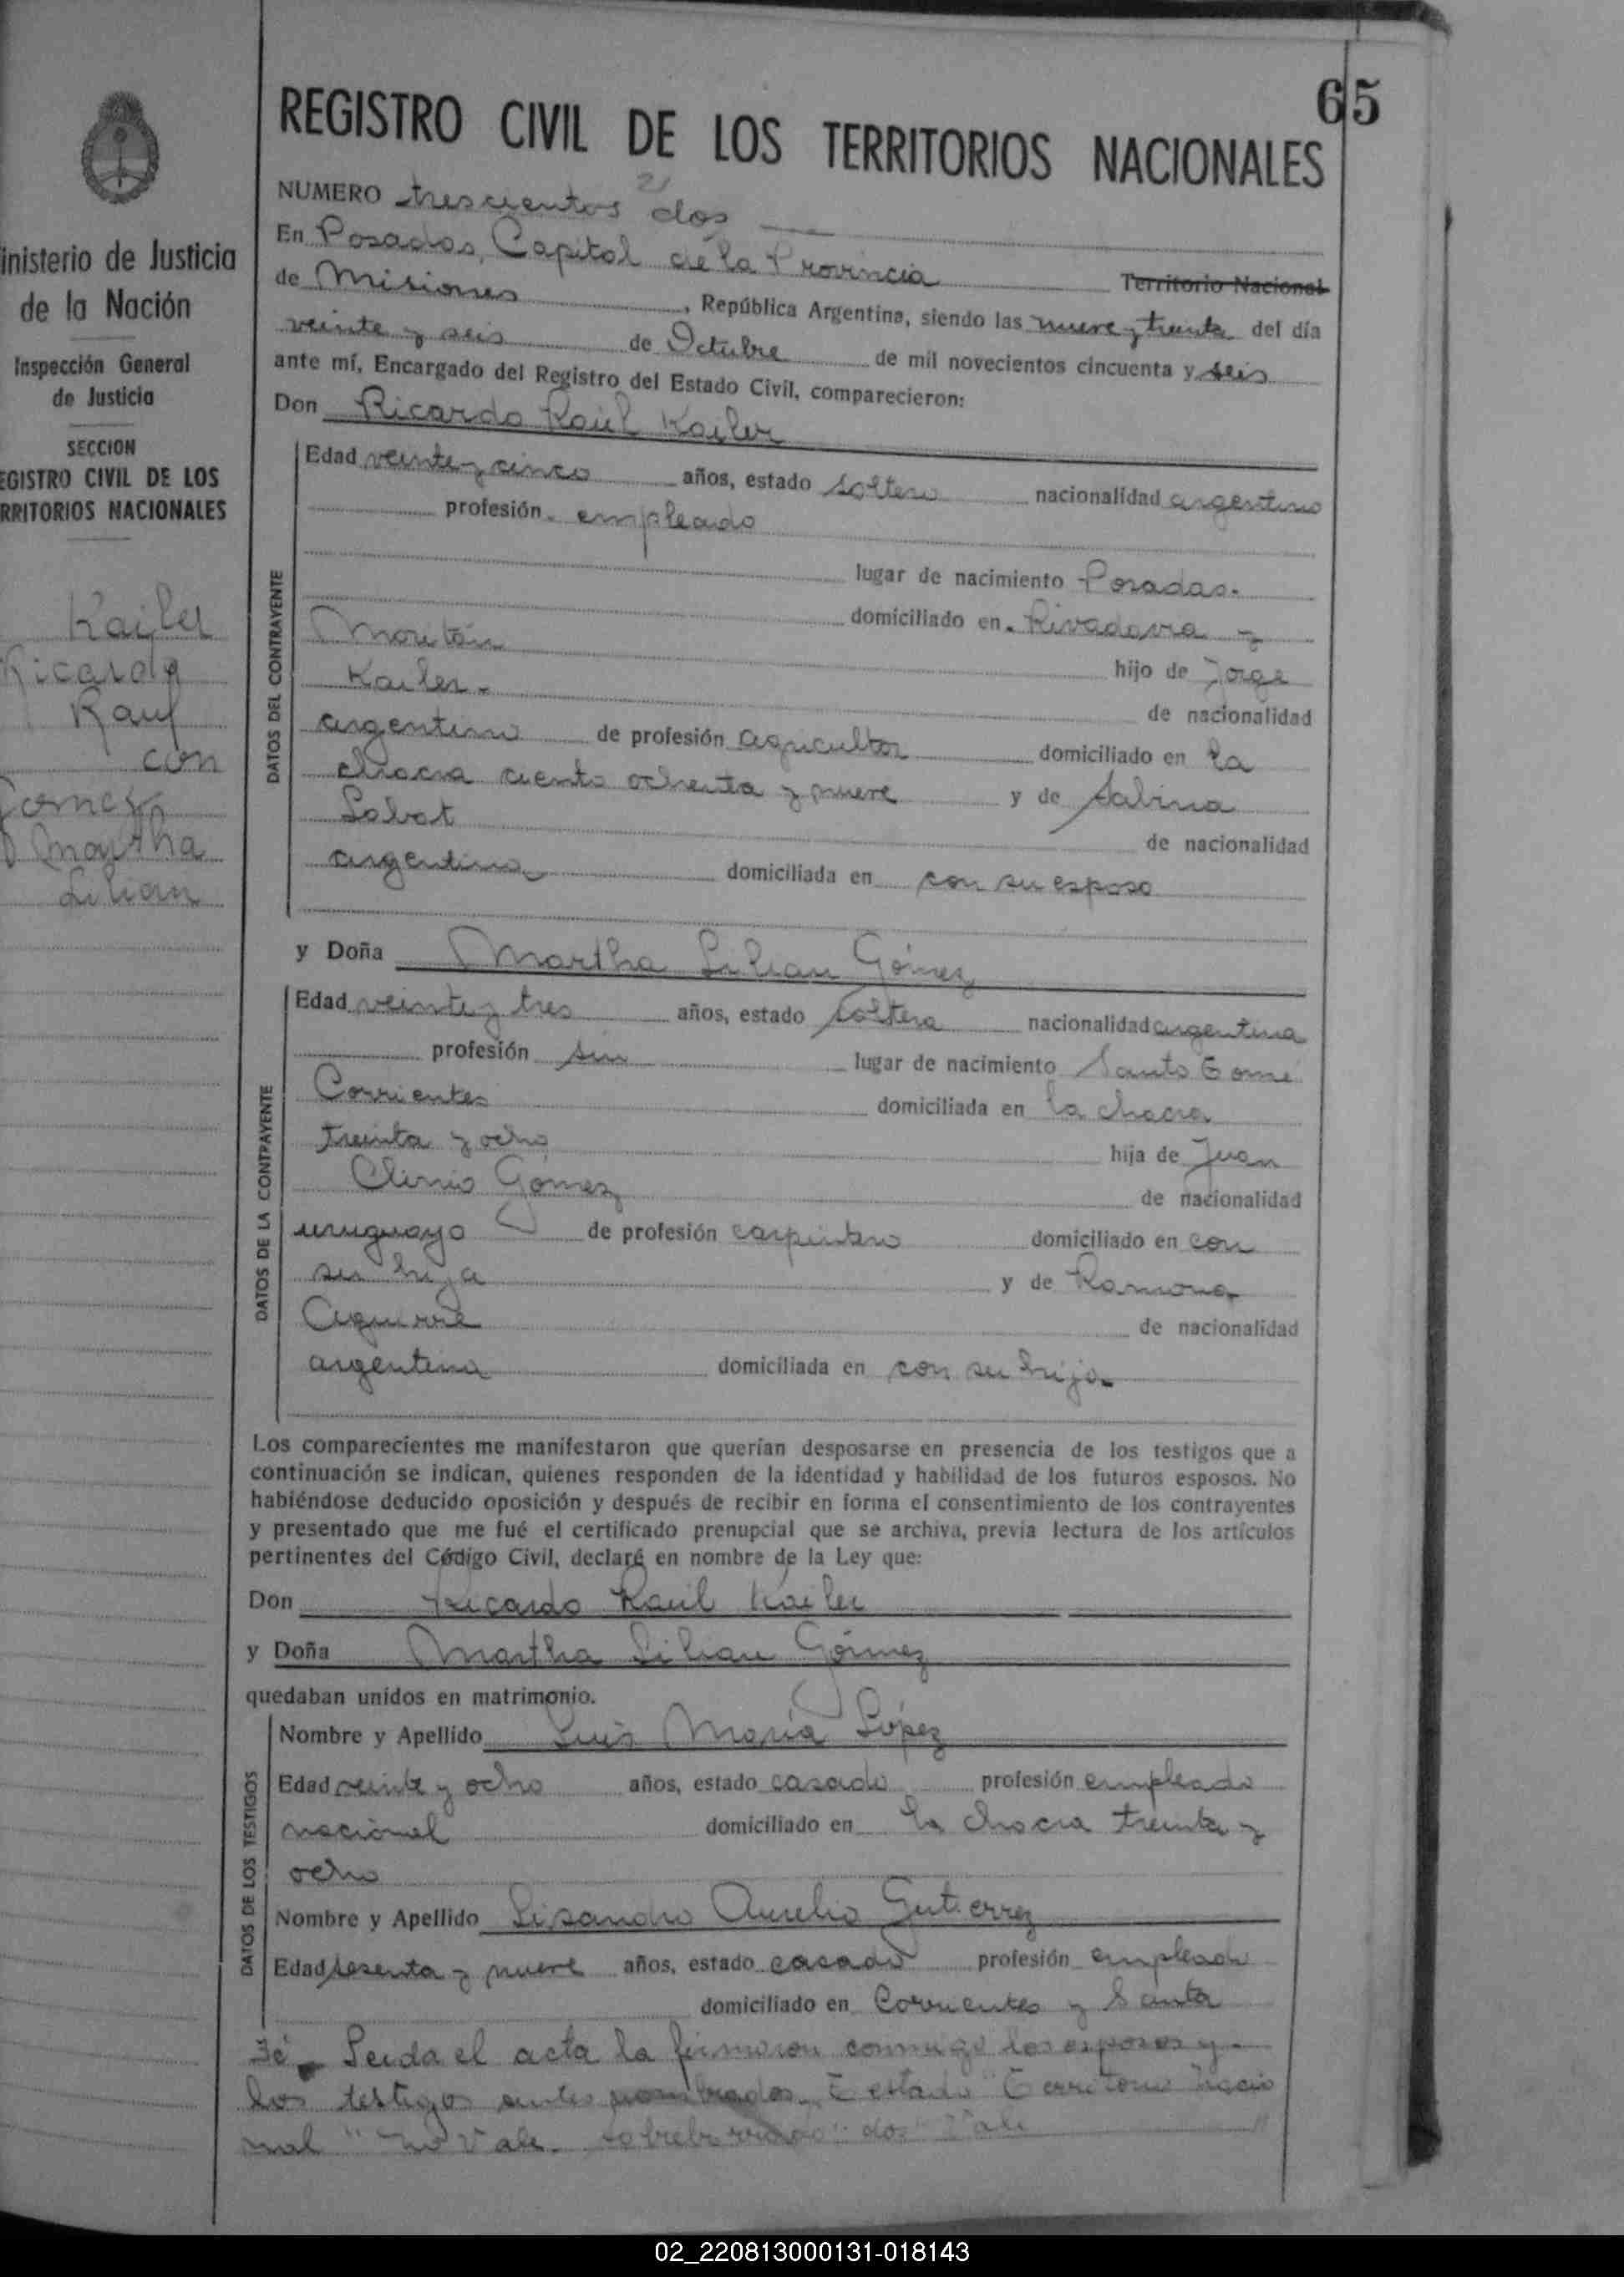 65
REGISTRO CIVIL DE LOS TERRITORIOS NACIONALES
NUMERO trescientos dos
En Posadas, Capital de la Provincia Territorio Nacional
de Misiones, República Argentina, siendo las nueve y treinta del día
veinte y seis de Octubre de mil novecientos cincuenta y seis
ante mí, Encargado del Registro del Estado Civil, comparecieron:
Don Ricardo Raúl Kailer
Edad veinte y cinco años, estado soltero nacionalidad argentino
profesión empleado
lugar de nacimiento Posadas.
domiciliado en Rivadavia y
hijo de Jorge
Kailer.
de nacionalidad
argentino de profesión agricultor domiciliado en la
chacra ciento ochenta y nueve y de Sabina
de nacionalidad
argentina domiciliada en con su esposo
DATOS DEL CONTRAYENTE
y Doña Martha Lilian Gómez
Edad veinte y tres años, estado soltera nacionalidad argentina
profesión sin lugar de nacimiento Santo Tomé
Corrientes domiciliada en la chacra
treinta y ocho hija de Juan
Gómez de nacionalidad
uruguayo de profesión carpintero domiciliado en con
su hija y de Ramona
Aguirre de nacionalidad
argentina domiciliada en con su hija.
DATOS DE LA CONTRAYENTE
Los comparecientes me manifestaron que querían desposarse en presencia de los testigos que a
continuación se indican, quienes responden de la identidad y habilidad de los futuros esposos. No
habiéndose deducido oposición y después de recibir en forma el consentimiento de los contrayentes
y presentado que me fué el certificado prenupcial que se archiva, previa lectura de los artículos
pertinentes del Código Civil, declaré en nombre de la Ley que:
Don Ricardo Raúl Kailer
y Doña Martha Lilian Gómez
quedaban unidos en matrimonio.
Nombre y Apellido Luis María López
Edad veinte y ocho años, estado casado profesión empleado
nacional domiciliado en la chacra treinta y
ocho
Nombre y Apellido Lisandro Aurelio Gutierrez
Edad sesenta y nueve años, estado casado profesión empleado
domiciliado en Corrientes y Santa
Fé. Leida el acta la firmaron conmigo los esposos y
los testigos antes nombrados. Testado "Territorio Nacio
nal" no Vale. sobreborrado "dos" Vale
DATOS DE LOS TESTIGOS
inisterio de Justicia
de la Nación
Inspección General
de Justicia
SECCION
EGISTRO CIVIL DE LOS
RRITORIOS NACIONALES
Kailer
Ricardo
Raul
con
Gomez
Martha
Lilian
02_220813000131-018143